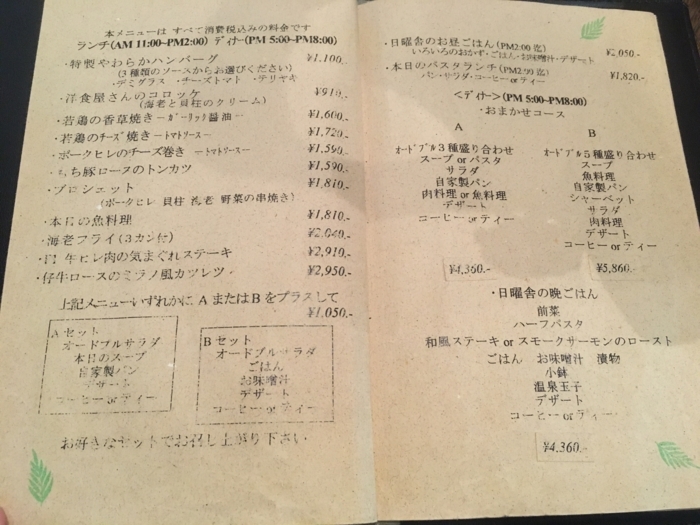 本メニューは すべて消費税込みの料金です
ランチ(AM 11:00~PM2:00) ディナー(PM 5:00~PM8:00)
・特製やわらかハンバーグ ¥1,100.-
(3種類のソースからお選びください)
・デミグラス ・チーズトマト ・テリヤキ
・洋食屋さんのコロッケ ¥910.-
(海老と貝柱のクリーム)
・若鶏の香草焼き ーガーリック醤油ー ¥1,600.-
・若鶏のチーズ焼き ートマトソースー ¥1,720.-
・ポークヒレのチーズ巻き ートマトソースー ¥1,590.-
・もち豚ロースのトンカツ ¥1,590.-
・ブロシェット ¥1,810.-
(ポークヒレ 貝柱 海老 野菜の串焼き)
・本日の魚料理 ¥1,810.-
・海老フライ(3カン付) ¥2,040.-
牛ヒレ肉の気まぐれステーキ ¥2,910.-
・仔牛ロースのミラノ風カツレツ ¥2,950.-
上記メニューいずれかに A または B をプラスして
¥1,050.-
A セット
オードブルサラダ
本日のスープ
自家製パン
デザート
コーヒー or ティー
B セット
オードブルサラダ
ごはん
お味噌汁
デザート
コーヒー or ティー
お好きなセットでお召し上がり下さい
・日曜舎のお昼ごはん(PM2:00 迄) ¥2,050.-
いろいろのおかず・ごはん・お味噌汁・デザート
・本日のパスタランチ(PM2:00 迄) ¥1,820.-
パン・サラダ・コーヒー or ティー
<ディナー>(PM 5:00~PM8:00)
・おまかせコース
A
オードブル3種盛り合わせ
スープ or パスタ
サラダ
自家製パン
肉料理 or 魚料理
デザート
コーヒー or ティー
¥4,360.-
B
オードブル5種盛り合わせ
スープ
魚料理
自家製パン
シャーベット
サラダ
肉料理
デザート
コーヒー or ティー
¥5,860.-
・日曜舎の晩ごはん
前菜
ハーフパスタ
和風ステーキ or スモークサーモンのロースト
ごはん お味噌汁 漬物
小鉢
温泉玉子
デザート
コーヒー or ティー
¥4,360.-